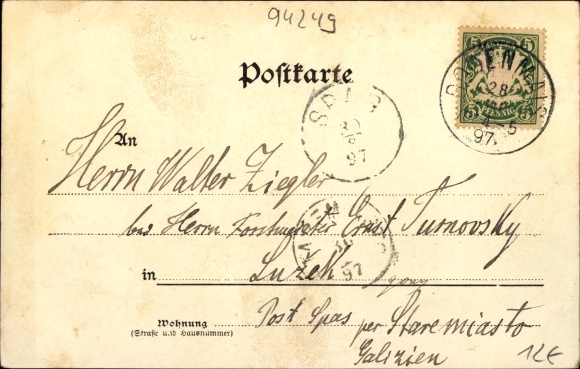 94249
Postkarte
5 5
PFENNIG
BODENMAIS
28
4-5
97.
SPAS
30
97
An
Herrn Walter Ziegler
bei Herrn Forstmeister Ernst Turnovsky
97
in Luzek
Wohnung
(Straße und Hausnummer)
Post Spas per Staremiasto
Galizien
12€